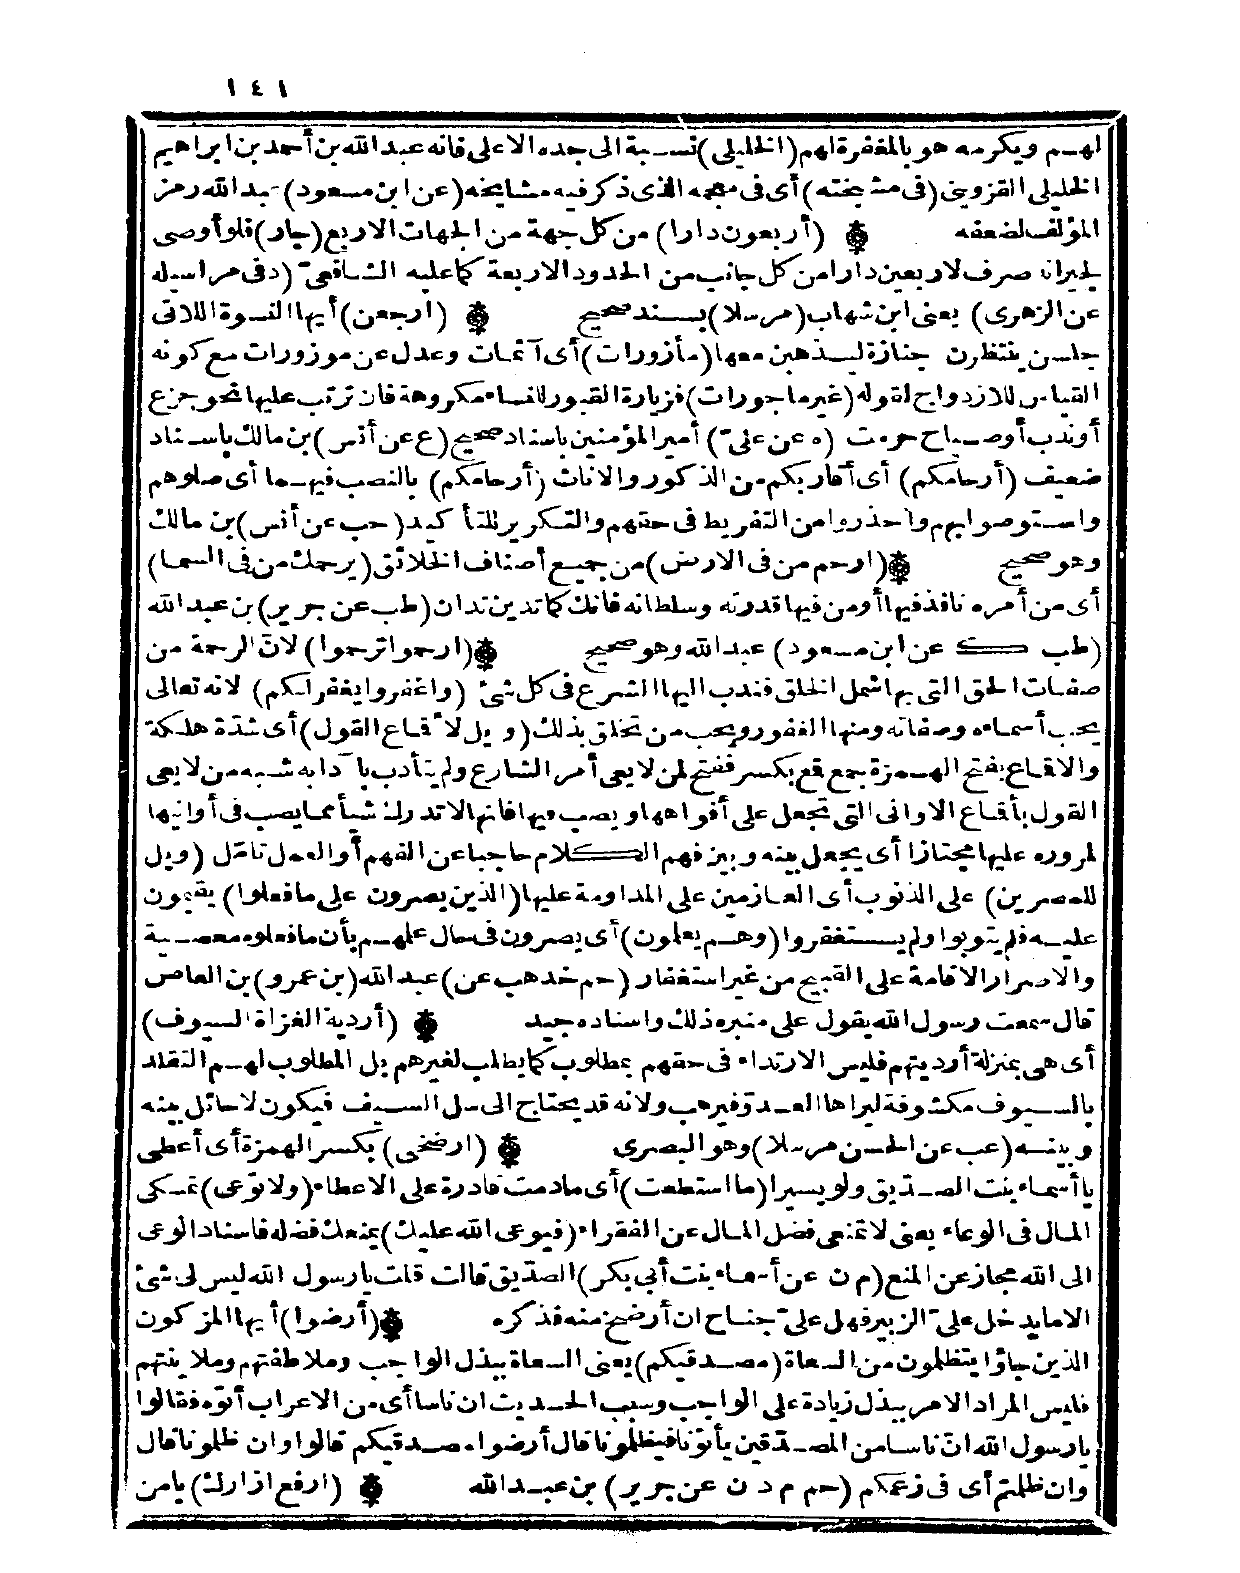 ١٤١
لهم ويكرمه هو بالمغفرة لهم (الخليلى) نسبة الى جده الاعلى فانه عبد الله بن أحمد بن ابراهيم
الخليلى القزوينى (فى مشيخته) أى فى معجمه الذى ذكر فيه مشايخه (عن ابن مسعود) عبد الله رمز
المؤلف لضعفه ۞ (أربعون دارا) من كل جهة من الجهات الاربع (جار) فلو أوصى
لجيرانه صرف لاربعين دارا من كل جانب من الحدود الاربعة كما عليه الشافعىّ (د فى مراسيله
عن الزهرى) يعنى ابن شهاب (مرسلا) بسند صحيح ۞ (ارجعن) أيها النسوة اللاتى
جلسن ينتظرن جنازة ليذهبن معها (مأزورات) أى آثمات وعدل عن موزورات مع كونه
القياس للازدواج لقوله (غير ماجورات) فزيارة القبور للنساء مكروهة فان ترتب عليها نحو جزع
أوندب أوصياح حرمت (ه عن علىّ) أمير المؤمنين باسناد صحيح (ع عن أنس) بن مالك باسناد
ضعيف (أرحامكم) أى أقاربكم من الذكور والاناث (أرحامكم) بالنصب فيهما أى صلوهم
واستوصوا بهم واحذروا من التفريط فى حقهم والتكرير للتأكيد (حب عن أنس) بن مالك
وهو صحيح ۞ (ارحم من فى الارض) من جميع أصناف الخلائق (يرحمك من فى السما)
أى من أمره نافذ فيها أو من فيها قدرته وسلطانه فانك كما تدين تدان (طب عن جرير) بن عبد الله
(طب ك عن ابن مسعود) عبد الله وهو صحيح ۞ (ارحموا ترحموا) لانّ الرحمة من
صفات الحق التى بها شمل الخلق فندب اليها الشرع فى كل شئ (واغفروا يغفر لكم) لانه تعالى
يحب أسماءه وصفاته ومنها الغفور ويحب من تخلق بذلك (ويل لأقماع القول) أى شدّة هلكة
والاقماع بفتح الهمزة جمع قمع بكسر ففتح لمن لا يعى أمر الشارع ولم يتأدب بآدابه شبه من لا يعى
القول بأقماع الاوانى التى تجعل على أفواهها ويصب فيها فانها لا تدرك شيأ مما يصب فى أوانيها
لمروره عليها مجتازا أى يجعل بينه وبين فهم الكلام حاجبا عن الفهم أو العمل تامّل (ويل
للمصرين) على الذنوب أى العازمين على المداومة عليها (الذين يصرون على ما فعلوا) يقيمون
عليه فلم يتوبوا ولم يستغفروا (وهم يعلون) أى يصرون فى حال علمهم بأن ما فعلوه معصية
والاصرار الاقامة على القبيح من غير استغفار (حم خد هب عن) عبد الله (بن عمرو) بن العاص
قال سمعت رسول الله يقول على منبره ذلك واسناده جيد ۞ (أردية الغزاة السيوف)
أى هى بمنزلة أرديتهم فليس الارتداء فى حقهم بمطلوب كما يطلب لغيرهم بل المطلوب لهم التقلد
بالسيوف مكشوفة ليراها العدوّ فيرهب ولانه قد يحتاج الى سل السيف فيكون لا حائل بينه
وبينه (عب عن الحسن مرسلا) وهو البصرى ۞ (ارضخى) بكسر الهمزة أى أعطى
يا أسماء بنت الصدّيق ولو يسيرا (ما استطعت) أى ما دمت قادرة على الاعطاء (ولا توعى) تمسكى
المال فى الوعاء يعنى لا تمنعى فضل المال عن الفقراء (فيوعى الله عليك) يمنعك فضله فاسناد الوعى
الى الله مجاز عن المنع (م ن عن أسماء بنت أبى بكر) الصدّيق قالت قلت يا رسول الله ليس لى شئ
الا ما يدخل علىّ الزبير فهل علىّ جناح ان أرضخ منه فذكره ۞ (أرضوا) أيها المزكون
الذين جاؤا يتظلمون من السعاة (مصدقيكم) يعنى السعاة ببذل الواجب وملاطفتهم وملاينتهم
فليس المراد الامر ببذل زيادة على الواجب وسبب الحديث ان ناسا أى من الاعراب أتوه فقالوا
يا رسول الله انّ ناسا من المصدّقين يأتونا فيظلمونا قال أرضوا مصدقيكم قالوا وان ظلمونا قال
وان ظلمتم أى فى زعمكم (حم م د ن عن جرير) بن عبد الله ۞ (ارفع ازارك) يا من